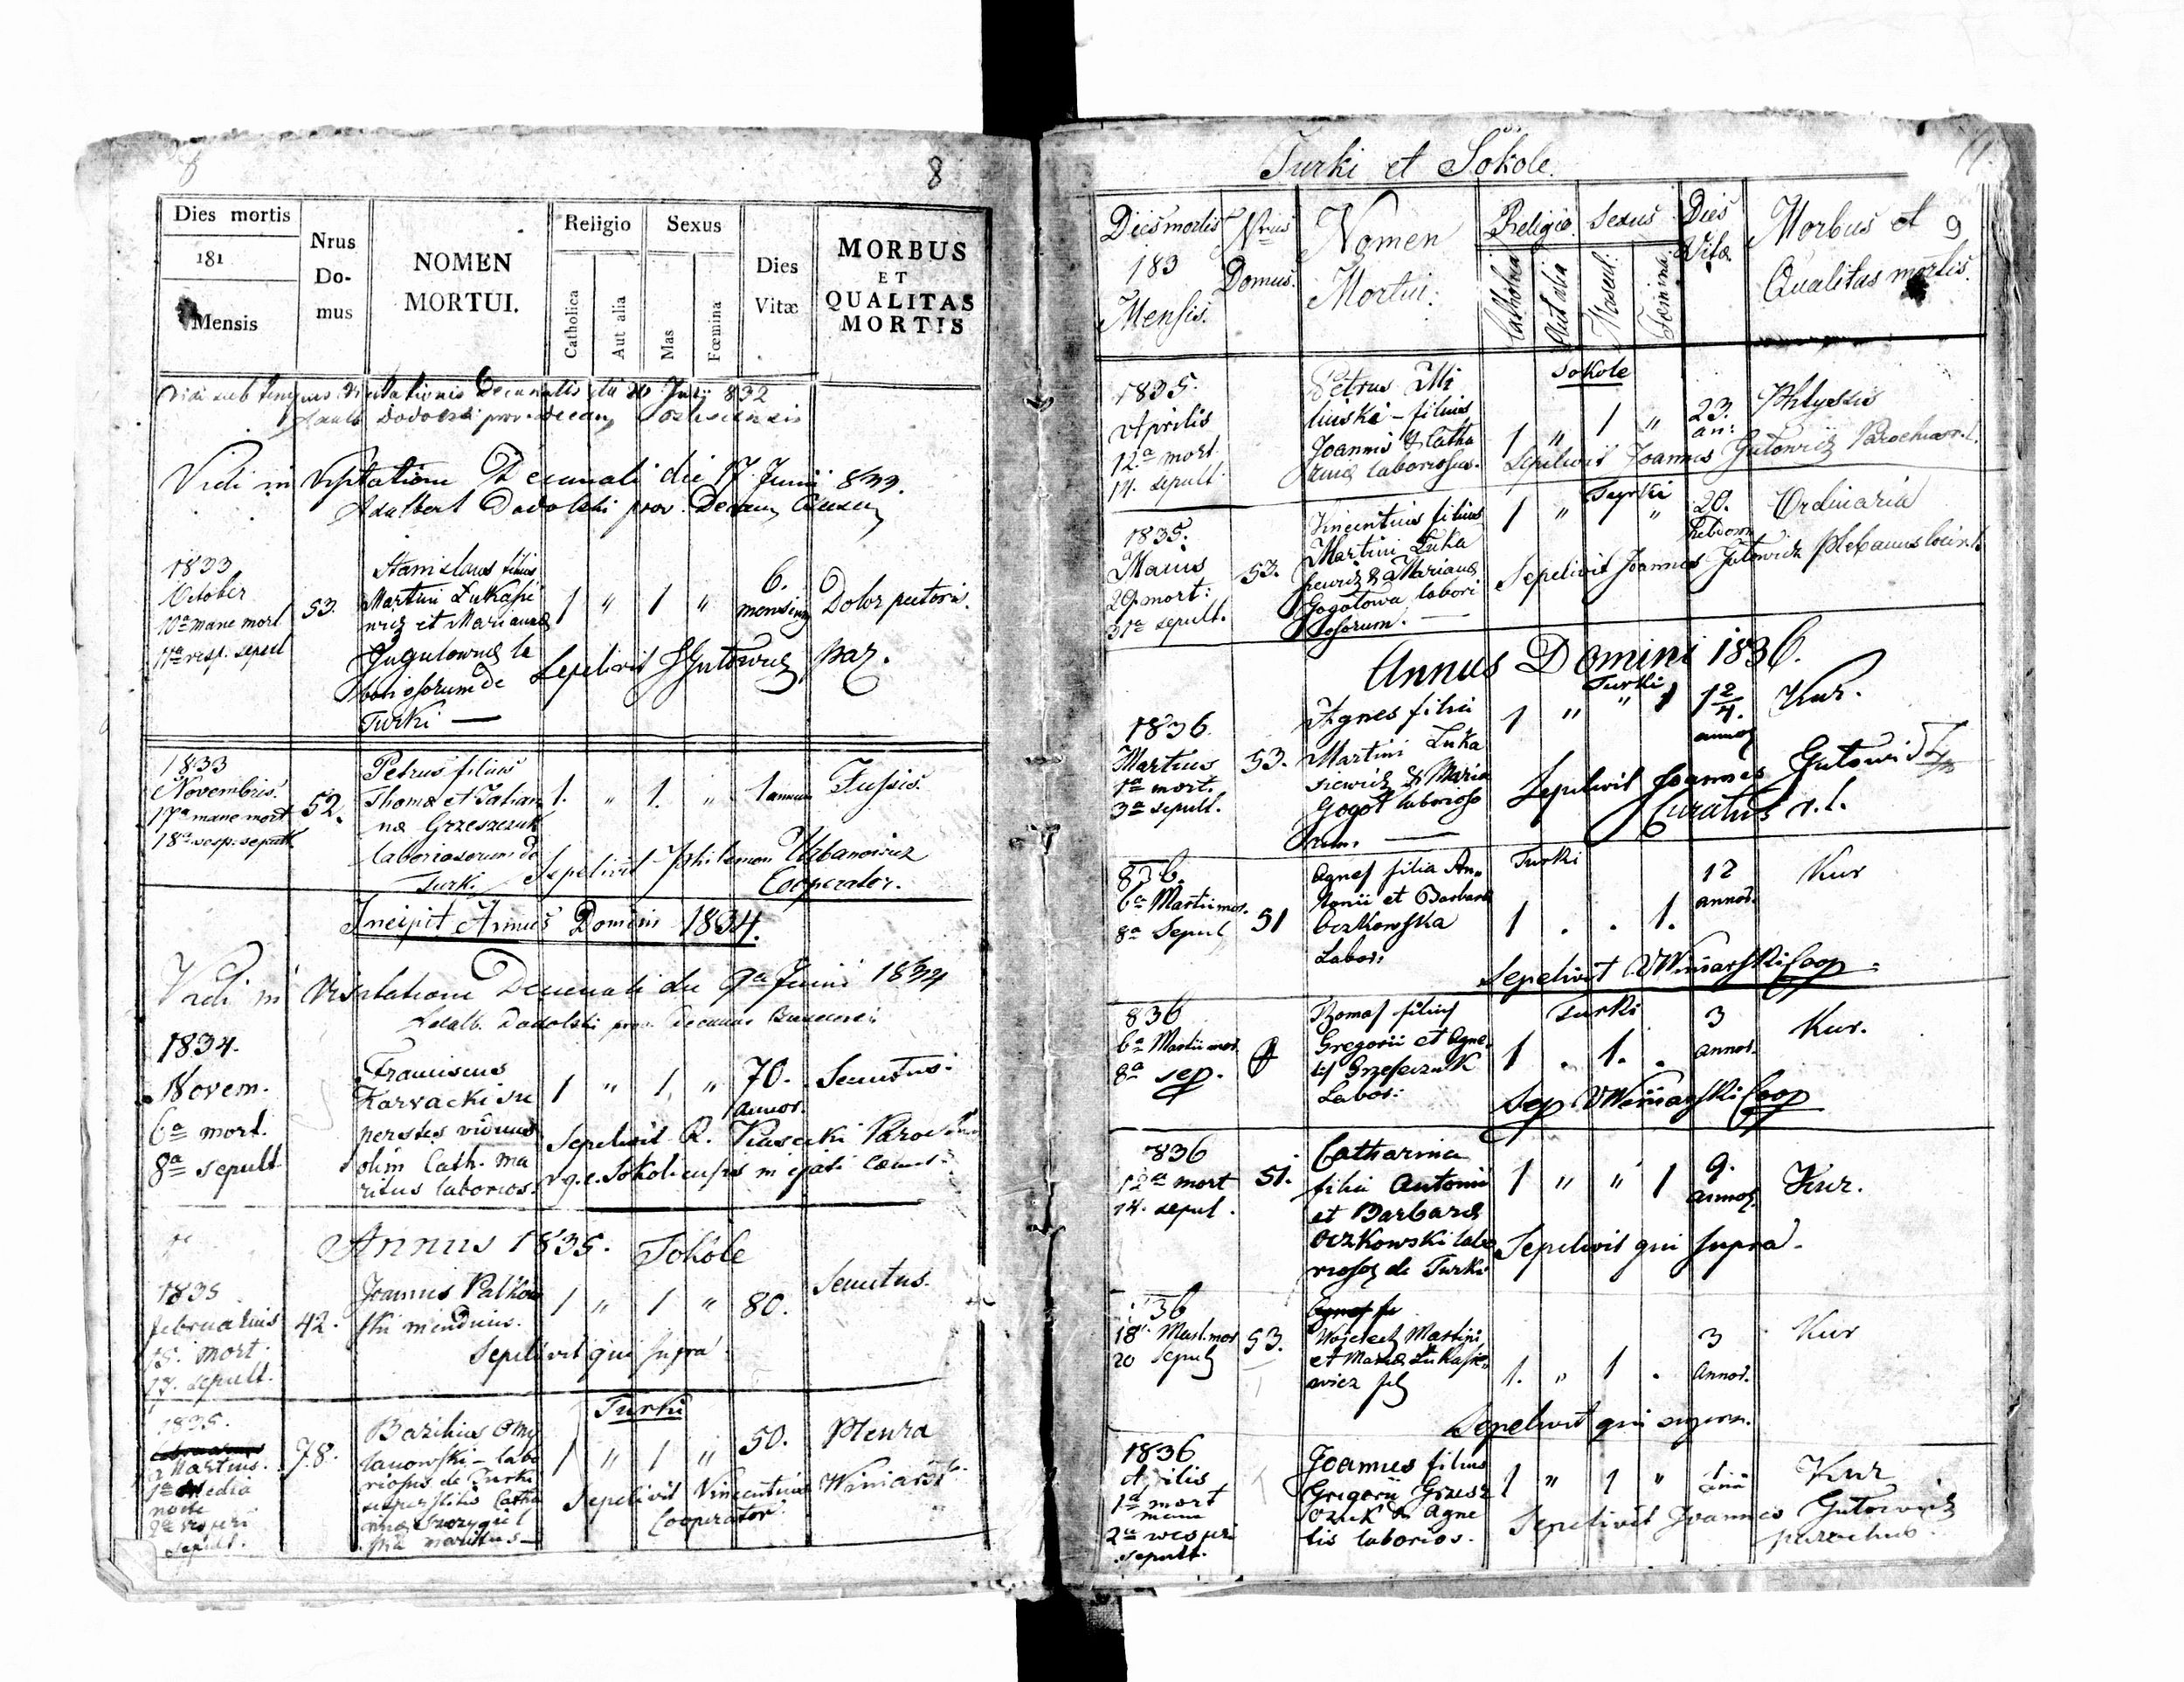 8
8
Dies mortis
181
Mensis
Nrus
Do-
mus
NOMEN
MORTUI.
Religio
Catholica
Aut alia
Sexus
Mas
Fœmina
Dies
Vitæ
MORBUS
ET
QUALITAS
MORTIS
Vidi sub tempus Decanalis 832
Dodolski prov. Decan
Vidi in Visitatione Decanali die 17 Junii 833.
Adalbert Dodolski prov. Decan
1833
October
10a mane mort
11a vesp. sepul
53.
Stanislaus filius
Martini Lukasie
wicz et Marianæ
Gugulownæ la
boriosorum de
Turki —
1 " 1 "
6.
mensium
Dolor pectoris.
Sepelivit J Gutowicz par.
1833
Novembris.
17a mane mort.
18a vesp. sepult
52.
Petrus filius
Thomæ et Tatian
næ Grzeszczuk
laboriosorum de
Turki
1. " 1. "
1 annum
Tussis.
Sepelivit Philemon Urbanowicz
Cooperator.
Incipit Annus Domini 1834.
Vidi in Visitatione Decanali die 9a Junii 1834
Adalb. Dodolski prov. Decanus
1834.
Novem.
6a mort.
8a sepult
Franciscus
Karvacki su
perstes viduus
olim Cath. ma
ritus laborios.
1 " 1 "
70.
annor.
Senectus.
Sepelivit R.
r. g. c. Sokol.
Annus 1835. Sokole
1835
februarius
15. mort.
17. sepult.
42.
Joannes Palkow
ski mendicus.
1 " 1 "
80.
Senectus.
Sepelivit qui supra
Turki
1835.
Martius.
1a media
nocte
sepult.
78.
Bazilius Omy
lanowski - labo
riosus de Turki
superstitis Catha
rinæ
maritus —
1 " 1 "
50.
Pleura
Sepelivit Vincentius Winiarski
Cooperator
Turki et Sokole.
9
Dies mortis
183
Mensis.
Nrus
Domus.
Nomen
Mortui.
Religio.
Catholica
Aut alia
Sexus
Mascul.
Fœmina.
Dies
Vitæ.
Morbus et
Qualitas mortis.
1835.
Aprilis
12.a mort.
14. sepult.
Petrus Mi
linski - filius
Joannis & Catha
rinæ laboriosus.
Sokole
1 " 1 "
23.
an:
Phtyssis
Sepelivit Joannes Gutowicz Parochus r. l.
1835.
Maius
29. mort:
31a sepult.
53.
Vincentius filius
Martini Luka
siewicz & Marianæ
Gogotowa labori
osorum. —
Turki
1 " 1 "
20.
hebdom
Ordinaria
Sepelivit Joannes Gutowicz Plebanus loci r. l.
Annus Domini 1836.
1836.
Martius
1a mort.
3a sepult.
53.
Agnes filia
Martini Luka
siewicz & Maria
Gogot laborioso
rum. —
Turki
1 " " 1
1 2/4.
annos
Kur.
Sepelivit Joannes Gutowicz
Curatus r. l.
836.
6a Martii mor.
8a Sepul
51
Agnes filia An
tonii et Barbara
Oczkowska
Labor:
Turki
1 . . 1.
12
annos.
Kur
Sepelivit VWiniarski Coop
836
6a Martii mor.
8a sep.
Thomas filius
Gregorii et Agne
tis Grzeszczuk
Labor:
Turki
1 . 1. .
3
annos.
Kur.
Sep VWiniarski Coop
836
12a mort
14. sepul.
51.
Catharina
filia Antonii
et Barbaræ
Oczkowski labo
riosor de Turki
1 " " 1
9.
annos
Kur.
Sepelivit qui supra.
36
18. Mart. mor
20 Sepul
53.
Agnes fi
Wojciech Martini
et Mariæ Lukasie
wicz fil
1. " 1 .
3
annos.
Kur
Sepelivit qui supra.
1836
Aprilis
1a mort
mane
2a vesperi
sepult.
Joannes filius
Gregorii Grzesz
czuk & Agne
tis laborios.
1 " 1 "
1
Kur
Sepelivit Joannes Gutowicz
parochus